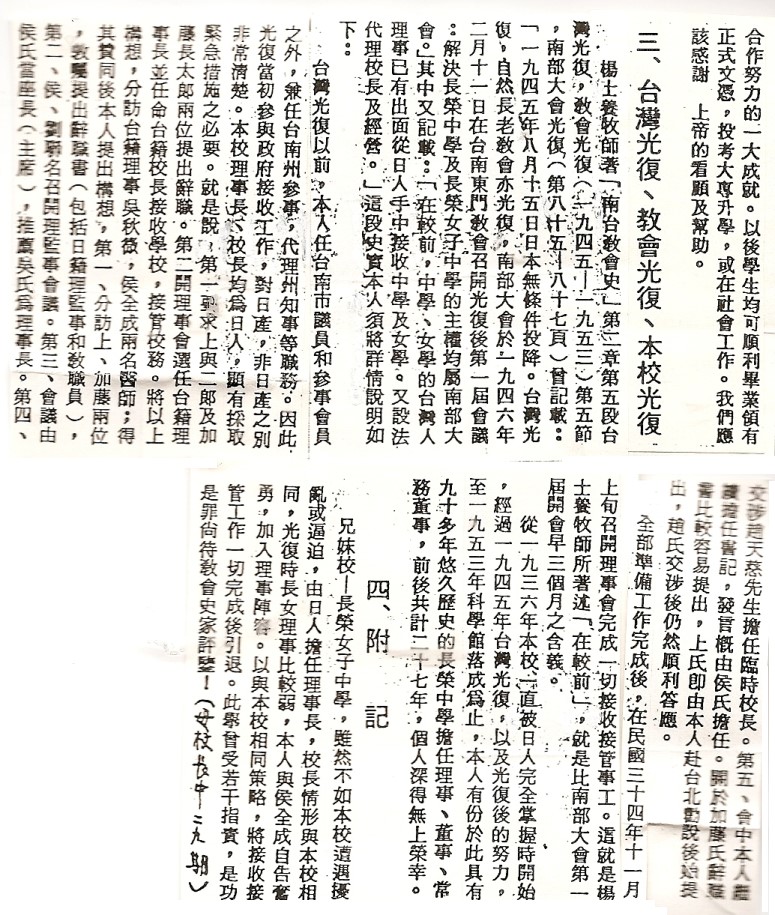 合作努力的一大成就。以後學生均可順利畢業領有
正式文憑，投考大專升學，或在社會工作。我們應
該感謝　上帝的看顧及幫助。
三、台灣光復、教會光復、本校光復
楊士養牧師著「南台教會史」第二章第五段台
灣光復，教會光復（一九四五－一九五三）第五節
，南部大會光復（第八十五－八十七頁）曾記載：
「一九四五年八月十五日日本無條件投降。台灣光
復，自然長老教會亦光復，南部大會於一九四六年
二月十一日在台南東門教會召開光復後第一屆會議
：解決長榮中學及長榮女子中學的主權均屬南部大
會。」其中又記載：「在較前，中學、女學的台灣人
理事已有出面從日人手中接收中學及女學。又設法
代理校長及經營。」這段史實本人須將詳情說明如
下：
台灣光復以前，本人任台南市議員和參事會員
之外，兼任台南州參事，代理州知事等職務。因此
光復當初參與政府接收工作，對日產，非日產之別
非常清楚。本校理事長、校長均為日人，顯有採取
緊急措施之必要。就是說，第一要求上與二郎及加
藤長太郎兩位提出辭職。第二開理事會選任台籍理
事長並任命台籍校長接收學校，接管校務。將以上
構想，分訪台籍理事吳秋微，侯全成兩名醫師；得
其贊同後本人提出構想，第一、分訪上、加藤兩位
，敦囑提出辭職書（包括日籍理監事和教職員），
第二、侯、劉聯名召開理監事會議。第三、會議由
侯氏當座長（主席），推薦吳氏為理事長。第四、
交涉趙天慈先生擔任臨時校長。第五、會中本人繼
續擔任書記，發言概由侯氏擔任。關於加藤氏辭職
書比較容易提出，上氏卽由本人赴台北勸說後始提
出，趙氏交涉後仍然順利答應。
全部準備工作完成後，在民國三十四年十一月
上旬召開理事會完成一切接收接管事工。這就是楊
士養牧師所著述「在較前」，就是比南部大會第一
屆開會早三個月之含義。
從一九三六年本校一直被日人完全掌握時開始
，經過一九四五年台灣光復，以及光復後的努力，
至一九五三年科學館落成為止，本人有份於此具有
九十多年悠久歷史的長榮中學擔任理事、董事、常
務董事，前後共計二十七年，個人深得無上榮幸。
四、附　記
兄妹校－長榮女子中學，雖然不如本校遭遇擾
亂或逼迫，由日人擔任理事長，校長情形與本校相
同，光復時長女理事比較弱，本人與侯全成自告奮
勇，加入理事陣容。以與本校相同策略，將接收接
管工作一切完成後引退。此舉曾受若干指責，是功
是罪尚待教會史家評鑒！（母校長中二九期）